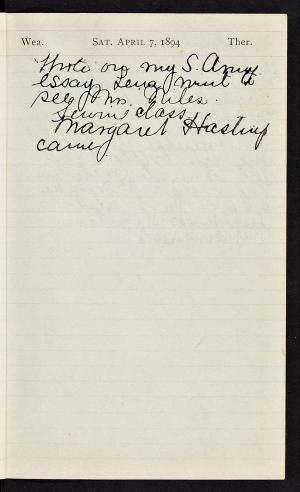 Wea. SAT. APRIL 7, 1894 Ther.
Wrote on my S. Army
essay. Lena went to
see Mrs.
class
Margaret Hastings
came.